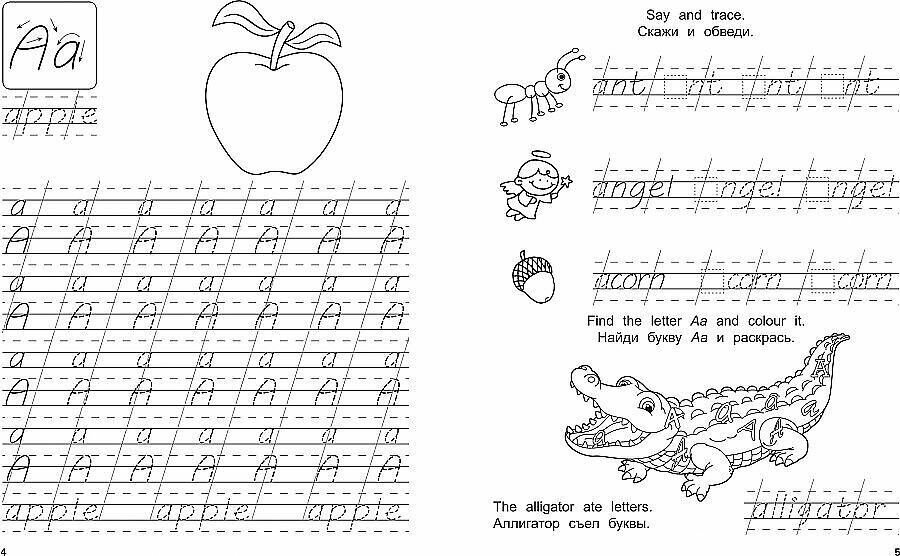 Aa
apple
a a a a a a a
A A A A A A A
a a a a a a a
A A A A A A A
a a a a a a a
A A A A A A A
a a a a a a a
A A A A A A A
apple apple apple
4
Say and trace.
Скажи и обведи.
ant □nt □nt □nt
angel □ngel □ngel
acorn □corn □corn
Find the letter Aa and colour it.
Найди букву Aa и раскрась.
A a a a A
a A A A
The alligator ate letters.
Аллигатор съел буквы.
alligator
5